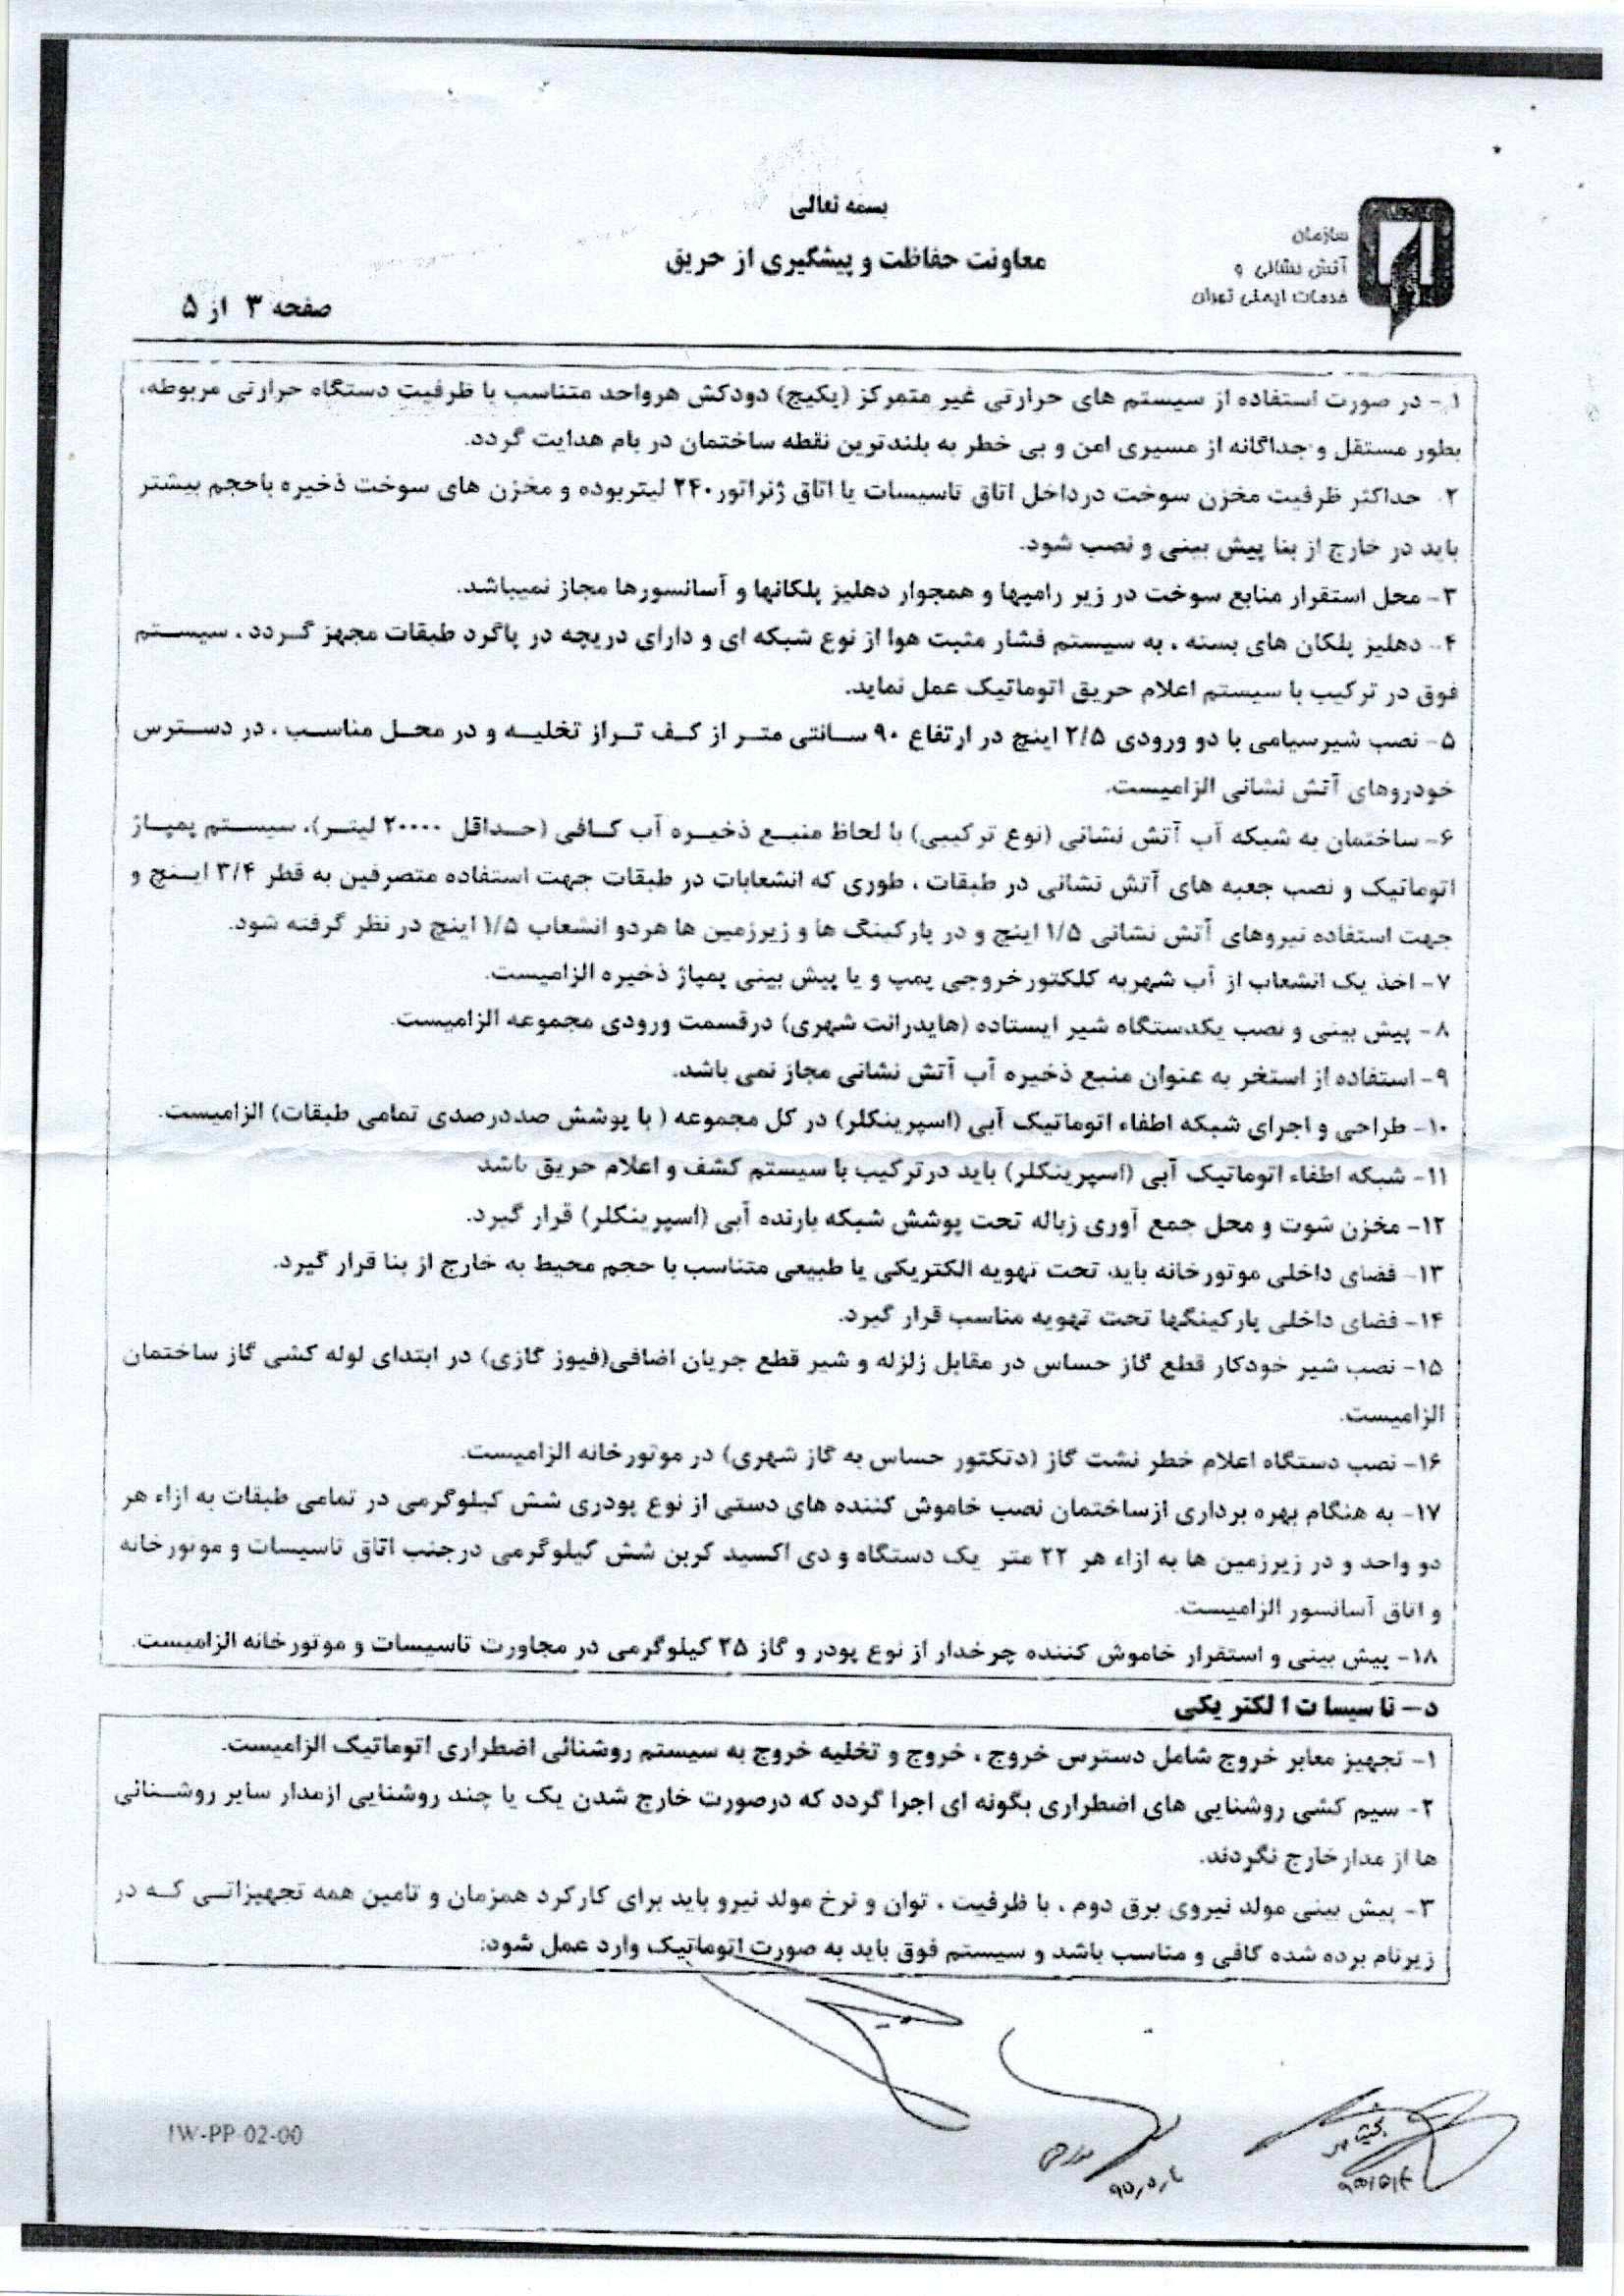 بسمه تعالی
معاونت حفاظت و پیشگیری از حریق
سازمان
آتش نشانی و
خدمات ایمنی تهران
صفحه ۳ از ۵
۱- در صورت استفاده از سیستم های حرارتی غیر متمرکز (پکیج) دودکش هرواحد متناسب با ظرفیت دستگاه حرارتی مربوطه،
بطور مستقل و جداگانه از مسیری امن و بی خطر به بلندترین نقطه ساختمان در بام هدایت گردد.
۲. حداکثر ظرفیت مخزن سوخت درداخل اتاق تاسیسات یا اتاق ژنراتور۲۴۰ لیتربوده و مخزن های سوخت ذخیره باحجم بیشتر
باید در خارج از بنا پیش بینی و نصب شود.
۳- محل استقرار منابع سوخت در زیر رامپها و همجوار دهلیز پلکانها و آسانسورها مجاز نمیباشد.
۴- دهلیز پلکان های بسته ، به سیستم فشار مثبت هوا از نوع شبکه ای و دارای دریچه در پاگرد طبقات مجهز گردد ، سیستم
فوق در ترکیب با سیستم اعلام حریق اتوماتیک عمل نماید.
۵- نصب شیرسیامی با دو ورودی ۲/۵ اینچ در ارتفاع ۹۰ سانتی متر از کف تراز تخلیه و در محل مناسب ، در دسترس
خودروهای آتش نشانی الزامیست.
۶- ساختمان به شبکه آب آتش نشانی (نوع ترکیبی) با لحاظ منبع ذخیره آب کافی (حداقل ۲۰۰۰۰ لیتر)، سیستم پمپاژ
اتوماتیک و نصب جعبه های آتش نشانی در طبقات ، طوری که انشعابات در طبقات جهت استفاده متصرفین به قطر ۳/۴ اینچ و
جهت استفاده نیروهای آتش نشانی ۱/۵ اینچ و در پارکینگ ها و زیرزمین ها هردو انشعاب ۱/۵ اینچ در نظر گرفته شود.
۷- اخذ یک انشعاب از آب شهربه کلکتورخروجی پمپ و یا پیش بینی پمپاژ ذخیره الزامیست.
۸- پیش بینی و نصب یکدستگاه شیر ایستاده (هایدرانت شهری) درقسمت ورودی مجموعه الزامیست.
۹- استفاده از استخر به عنوان منبع ذخیره آب آتش نشانی مجاز نمی باشد.
۱۰- طراحی و اجرای شبکه اطفاء اتوماتیک آبی (اسپرینکلر) در کل مجموعه ( با پوشش صددرصدی تمامی طبقات) الزامیست.
۱۱- شبکه اطفاء اتوماتیک آبی (اسپرینکلر) باید درترکیب با سیستم کشف و اعلام حریق باشد
۱۲- مخزن شوت و محل جمع آوری زباله تحت پوشش شبکه بارنده آبی (اسپرینکلر) قرار گیرد.
۱۳- فضای داخلی موتورخانه باید، تحت تهویه الکتریکی یا طبیعی متناسب با حجم محیط به خارج از بنا قرار گیرد.
۱۴- فضای داخلی پارکینگها تحت تهویه مناسب قرار گیرد.
۱۵- نصب شیر خودکار قطع گاز حساس در مقابل زلزله و شیر قطع جریان اضافی(فیوز گازی) در ابتدای لوله کشی گاز ساختمان
الزامیست.
۱۶- نصب دستگاه اعلام خطر نشت گاز (دتکتور حساس به گاز شهری) در موتورخانه الزامیست.
۱۷- به هنگام بهره برداری ازساختمان نصب خاموش کننده های دستی از نوع پودری شش کیلوگرمی در تمامی طبقات به ازاء هر
دو واحد و در زیرزمین ها به ازاء هر ۲۲ متر یک دستگاه و دی اکسید کربن شش کیلوگرمی درجنب اتاق تاسیسات و موتورخانه
و اتاق آسانسور الزامیست.
۱۸- پیش بینی و استقرار خاموش کننده چرخدار از نوع پودر و گاز ۲۵ کیلوگرمی در مجاورت تاسیسات و موتورخانه الزامیست.
د- تاسیسات الکتریکی
۱- تجهیز معابر خروج شامل دسترس خروج ، خروج و تخلیه خروج به سیستم روشنائی اضطراری اتوماتیک الزامیست.
۲- سیم کشی روشنایی های اضطراری بگونه ای اجرا گردد که درصورت خارج شدن یک یا چند روشنایی ازمدار سایر روشنائی
ها از مدارخارج نگردند.
۳- پیش بینی مولد نیروی برق دوم ، با ظرفیت ، توان و نرخ مولد نیرو باید برای کارکرد همزمان و تامین همه تجهیزاتی که در
زیرنام برده شده کافی و مناسب باشد و سیستم فوق باید به صورت اتوماتیک وارد عمل شود:
IW-PP-02-00